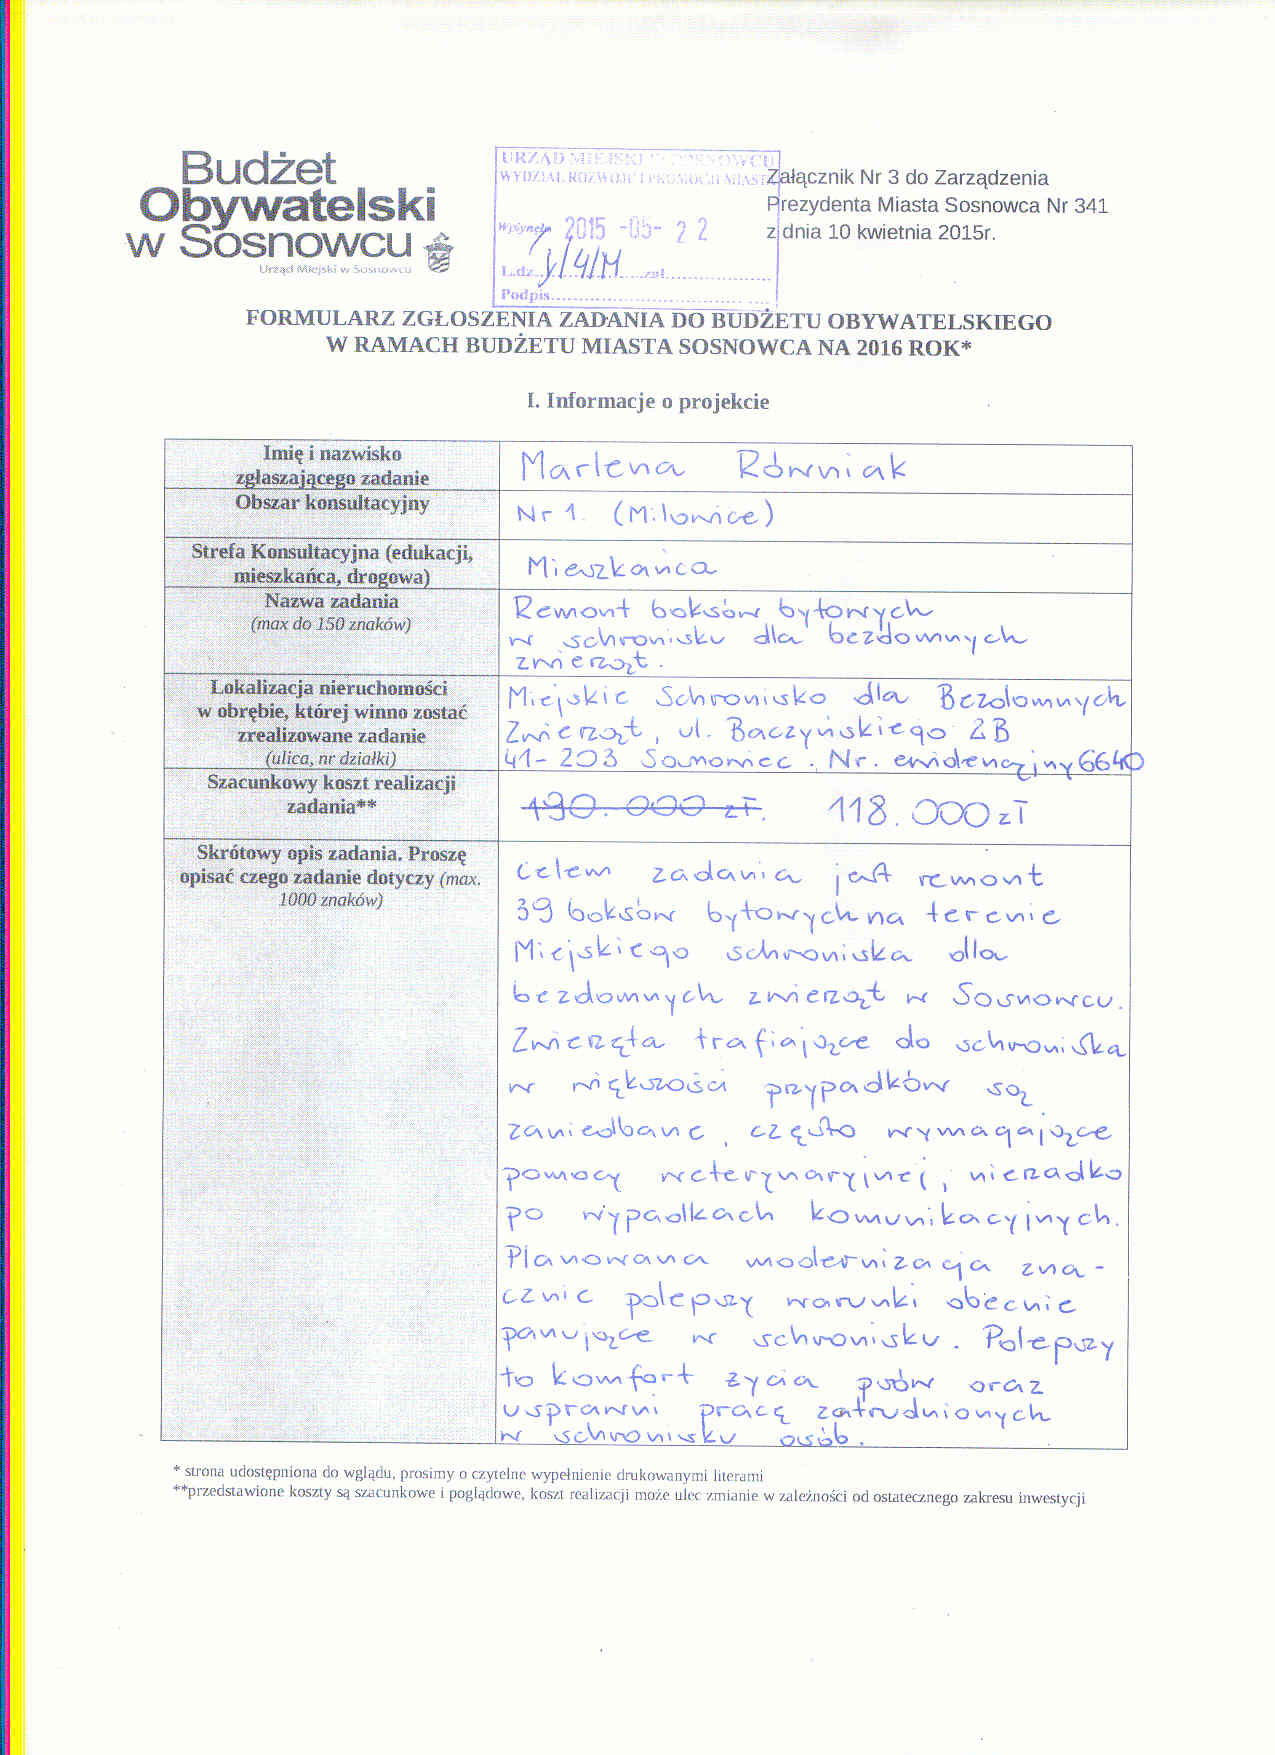 Budżet
Obywatelski
w Sosnowcu
Urząd Miejski w Sosnowcu
URZĄD MIEJSKI W SOSNOWCU
WYDZIAŁ ROZWOJU I PROMOCJI MIASTA
Wpłynęło 2015 -05- 2 2
L.dz. zał.
Podpis
Załącznik Nr 3 do Zarządzenia
Prezydenta Miasta Sosnowca Nr 341
z dnia 10 kwietnia 2015r.
FORMULARZ ZGŁOSZENIA ZADANIA DO BUDŻETU OBYWATELSKIEGO
W RAMACH BUDŻETU MIASTA SOSNOWCA NA 2016 ROK*
I. Informacje o projekcie
Imię i nazwisko
zgłaszającego zadanie
Marlena Równiak
Obszar konsultacyjny
Nr 1. (Milowice)
Strefa Konsultacyjna (edukacji,
mieszkańca, drogowa)
Mieszkańca
Nazwa zadania
(max do 150 znaków)
Remont boksów bytowych
w schronisku dla bezdomnych
zwierząt.
Lokalizacja nieruchomości
w obrębie, której winno zostać
zrealizowane zadanie
(ulica, nr działki)
Miejskie Schronisko dla Bezdomnych
Zwierząt, ul. Baczyńskiego 2B
41-203 Sosnowiec. Nr. ewidencyjny 6640
Szacunkowy koszt realizacji
zadania**
190.000 zł. 118.000 zł
Skrótowy opis zadania. Proszę
opisać czego zadanie dotyczy (max.
1000 znaków)
Celem zadania jest remont
39 boksów bytowych na terenie
Miejskiego schroniska dla
bezdomnych zwierząt w Sosnowcu.
Zwierzęta trafiające do schroniska
w większości przypadków są
zaniedbane, często wymagające
pomocy weterynaryjnej, nierzadko
po wypadkach komunikacyjnych.
Planowana modernizacja zna-
cznie polepszy warunki obecnie
panujące w schronisku. Polepszy
to komfort życia psów oraz
usprawni pracę zatrudnionych
w schronisku osób.
* strona udostępniona do wglądu, prosimy o czytelne wypełnienie drukowanymi literami
**przedstawione koszty są szacunkowe i poglądowe, koszt realizacji może ulec zmianie w zależności od ostatecznego zakresu inwestycji